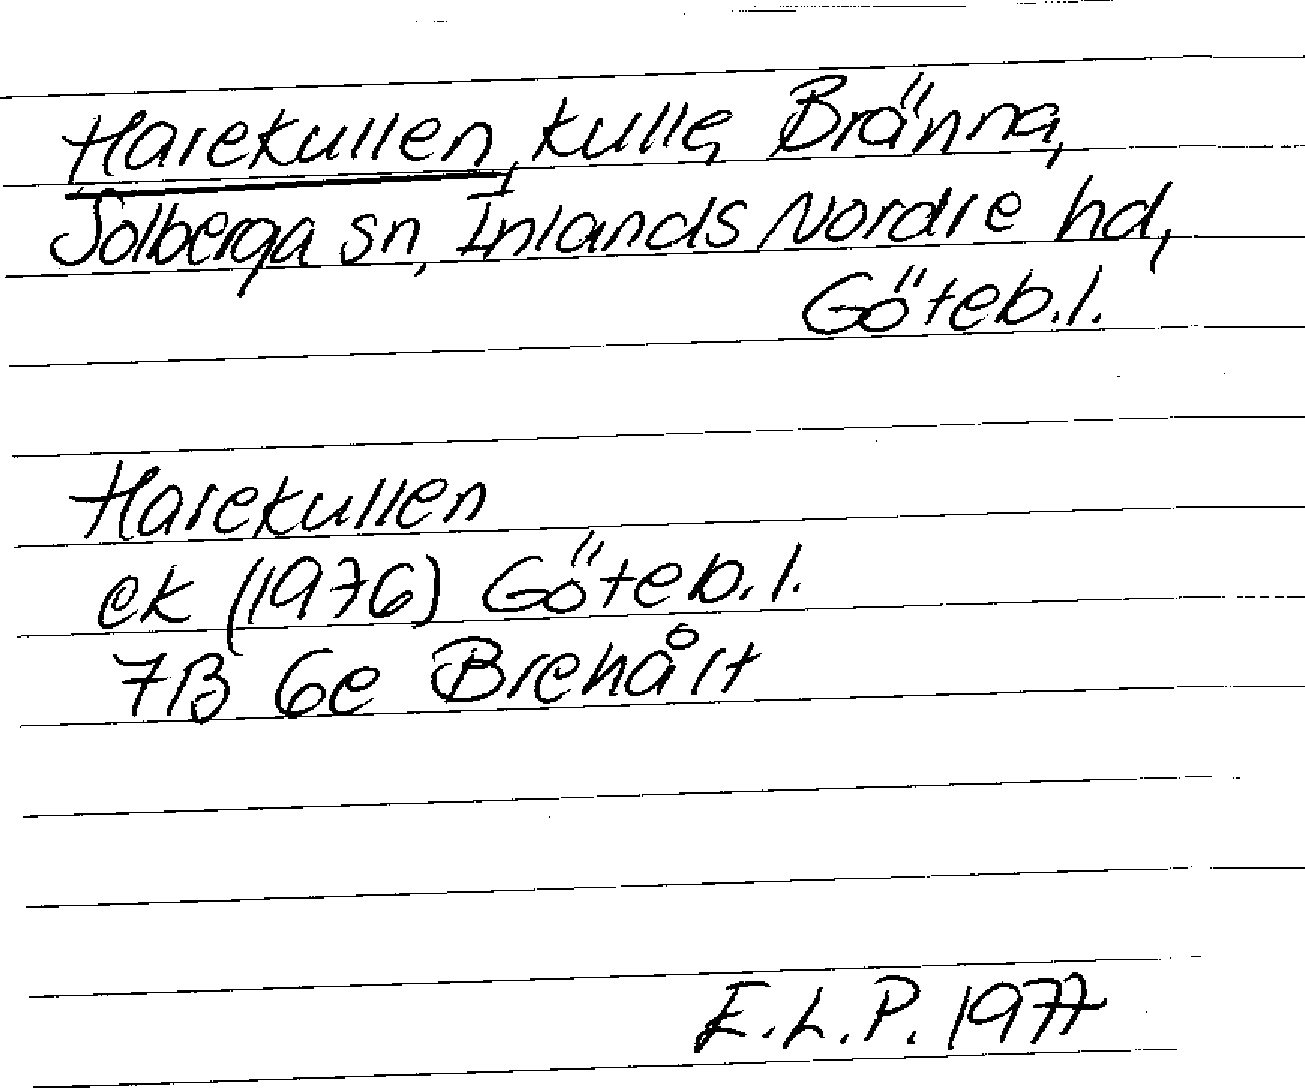 Harekullen, kulle, Bränna,
Solberga sn, Inlands Nordre hd,
Göteb.l.
Harekullen
ek (1976) Göteb.l.
7B 6e Brehårt
E.L.P. 1977